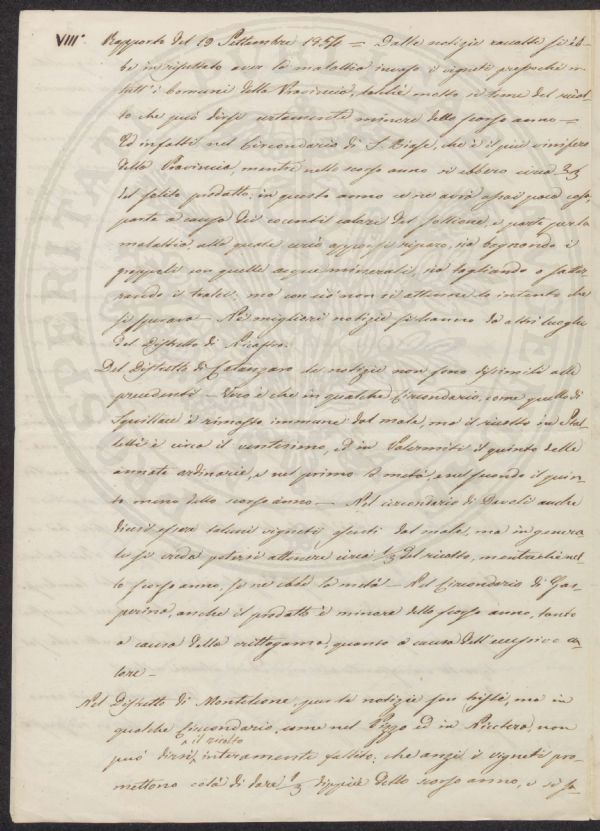 VIII° Rapporto del 19 Settembre 1854 = Dalle notizie raccolte si eb-
be in risultato aver la malattia invaso i vigneti pressochè in
tutt' i Comuni della Provincia, talchè molto si teme del ricol-
to che può dirsi certamente minore dello scorso anno =
Ed infatti nel Circondario di S. Biase, che è il più vinifero
della Provincia, mentre nello scorso anno si ebbero circa 2/3
del solito prodotto, in questo anno se ne avrà assai poca cosa,
parte a causa dei cocenti calori del sollione, e parte per la
malattia alla quale riparo, sia bagnando i
grappoli con quelle acque minerali, sia tagliando o
il tralci; ma con ciò non si ottenne lo intento che
si sperava = Nè migliori notizie si hanno da altri luoghi
del Distretto di Nicastro.
Del Distretto di Catanzaro le notizie non sono dissimili alle
precedenti = Vero è che in qualche Circondario, come quello di
Squillace è rimasto immune dal male, ma il ricolto in Sta-
letti è circa il ventesimo, ed in Palermiti il quinto delle
annate ordinarie, e nel primo la metà, e nel secondo il quin-
to meno dello scorso anno = Nel circondario di Davoli anche
diconsi essere taluni vigneti esenti dal male, ma in genera-
le si crede potersi ottenere circa 1/3 del ricolto, mentrechè nel-
lo scorso anno, se ne ebbe la metà = Nel Circondario di Gas-
perina, anche il prodotto è minore dello scorso anno, tanto
a causa della crittogama, quanto a causa dell' eccessivo ca-
lore =
Nel Distretto di Monteleone, pure le notizie son triste, ma in
qualche Circondario, come nel Pizzo ed in Nicotera, non
il ricolto
può dirsi interamente fallito, che anzi i vigneti pro-
mettono colà di dare 1/3 dippiù dello scorso anno, e si fa-